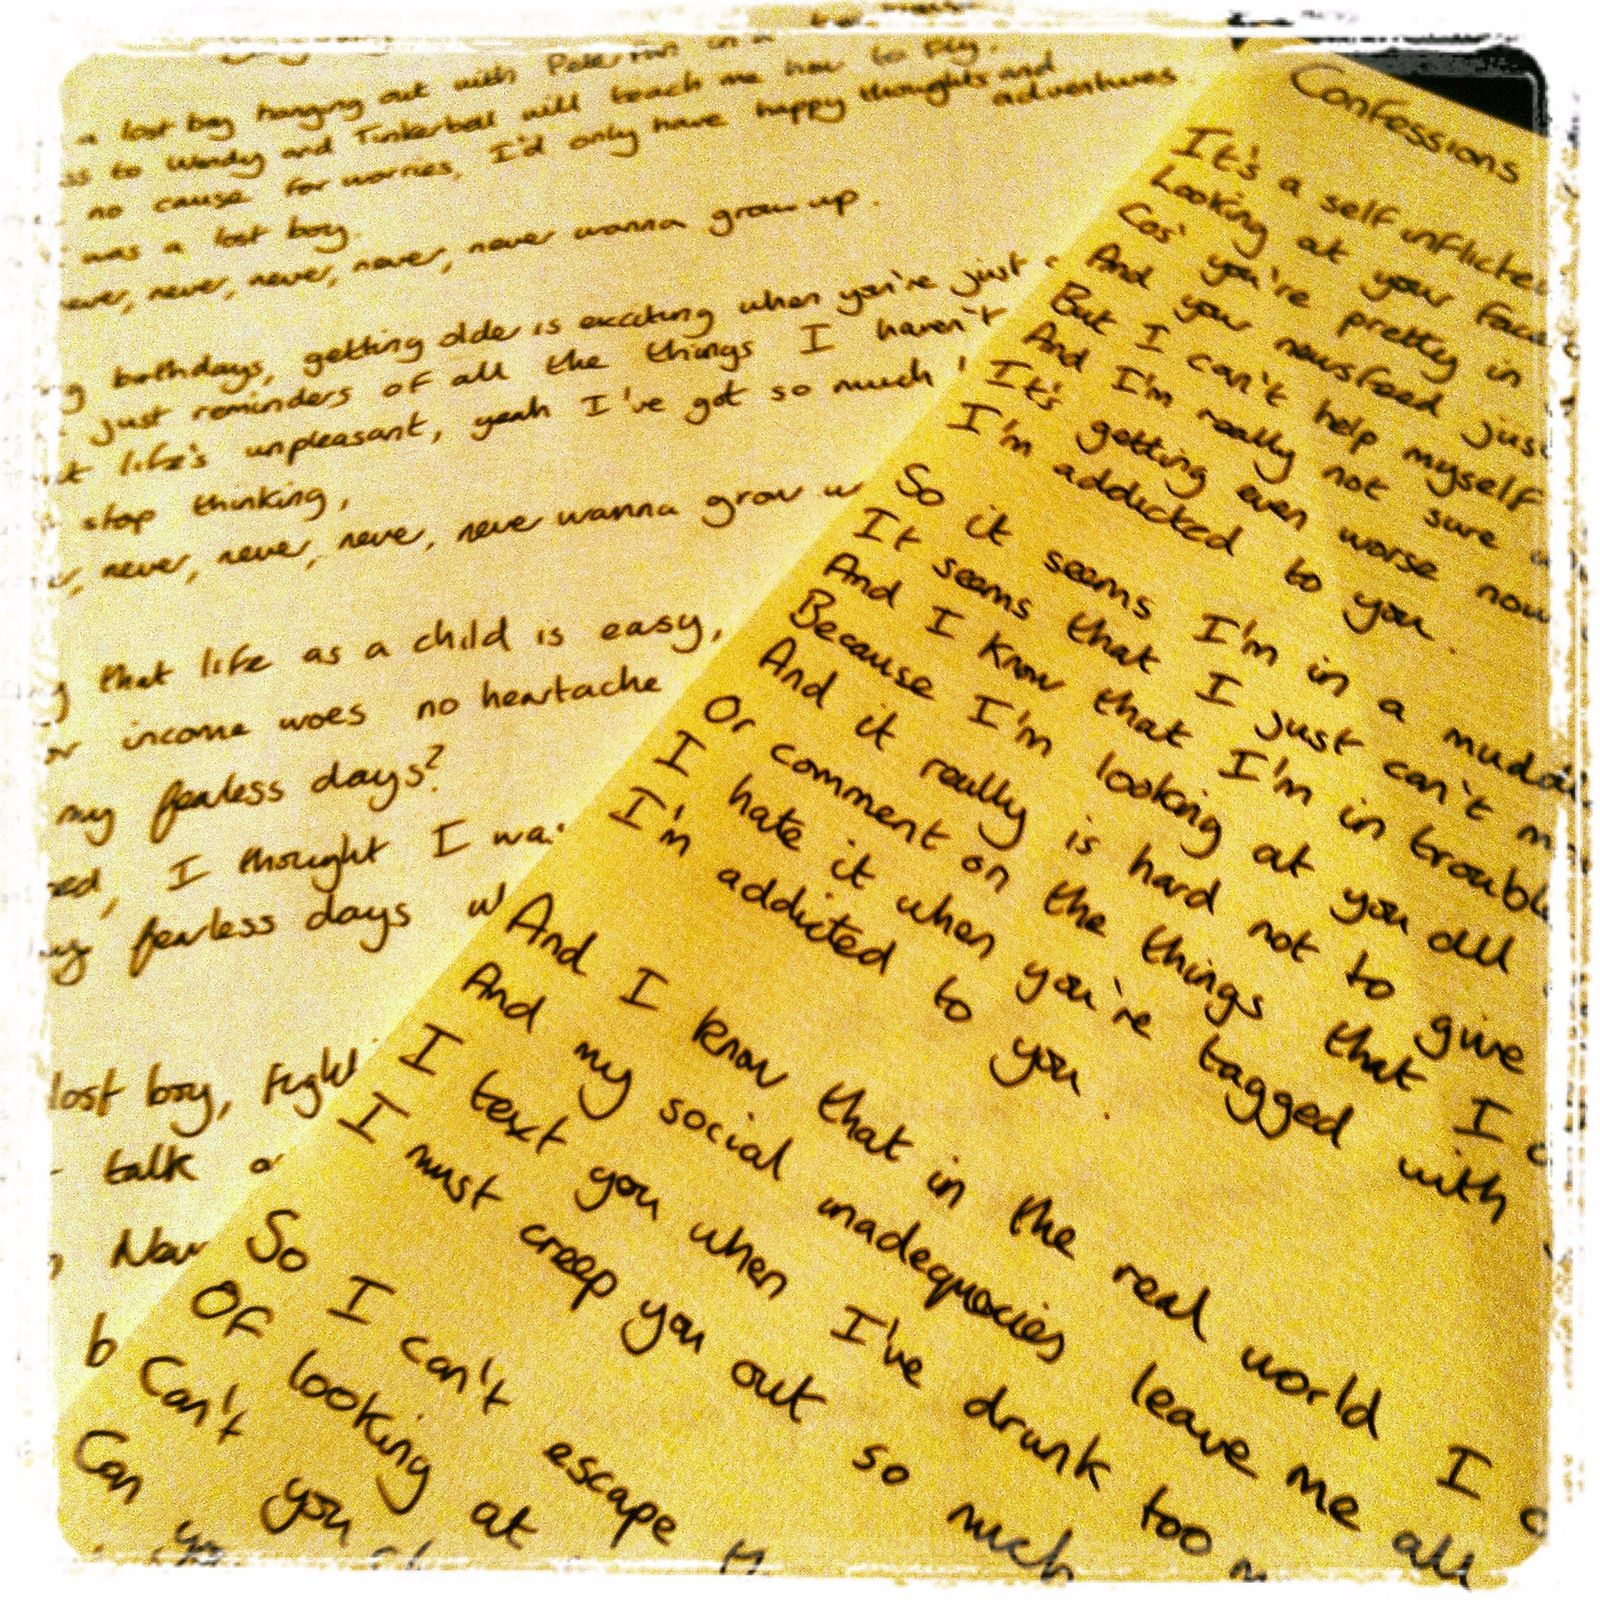 a lost boy hanging out with Peter Pan in a
to Wendy and Tinkerbell will teach me how to fly.
no cause for worries, I'd only have happy thoughts and
adventures
was a lost boy.
never, never, never, never wanna grow up.
birthdays, getting older is exciting when you're just
just reminders of all the things I haven't
life's unpleasant, yeah I've got so much
stop thinking,
never, never, never, never wanna grow
that life as a child is easy,
income woes no heartache
my fearless days?
I thought I
fearless days
lost boy,
talk
Confessions
It's a self inflicted
Looking at your face
Cos' you're pretty in
And your newsfeed just
But I can't help myself
And I'm really not sure
It's getting even worse now
I'm addicted to you.
So it seems I'm in a
It seems that I just can't
And I know that I'm in trouble
Because I'm looking at you all
And it really is hard not to give
Or comment on the things that I
I hate it when you're tagged with
I'm addicted to you.
And I know that in the real world I
And my social inadequacies leave me all
I text you when I've drunk too
I must creep you out so much
So I can't escape
Of looking at
Can't you
Can